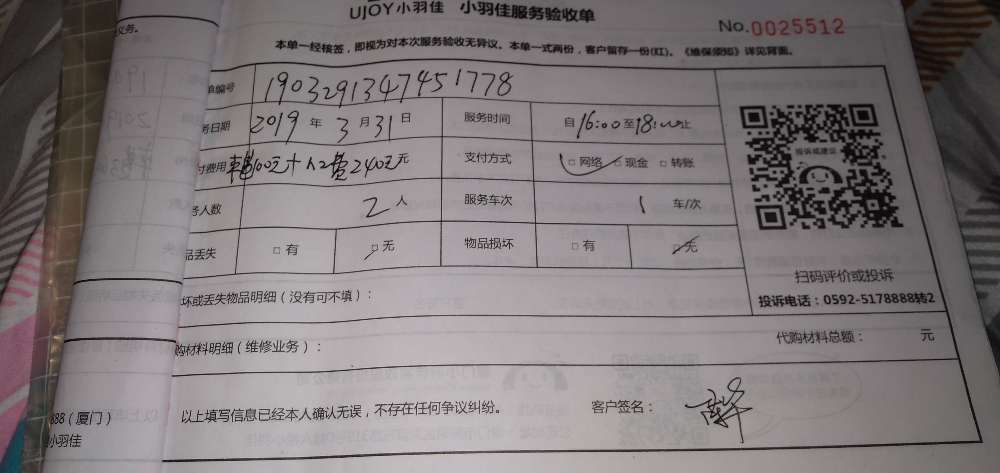 UJOY小羽佳 小羽佳服务验收单
No.0025512
义务。
本单一经核签，即视为对本次服务验收无异议。本单一式两份，客户留存一份(红)。《维保须知》详见背面。
单编号 1903291347451778
务日期 2019 年 3 月 31 日 服务时间 自 16:00 至 18: 止
付费用 100元十人工费240元 元 支付方式 □ 网络 □ 现金 □ 转账
务人数 2 人 服务车次 1 车/次
品丢失 □ 有 □ 无 物品损坏 □ 有 □ 无
投诉或建议
扫码评价或投诉
投诉电话：0592-5178888转2
坏或丢失物品明细（没有可不填）：
购材料明细（维修业务）： 代购材料总额： 元
以上填写信息已经本人确认无误，不存在任何争议纠纷。 客户签名：
888（厦门）
小羽佳